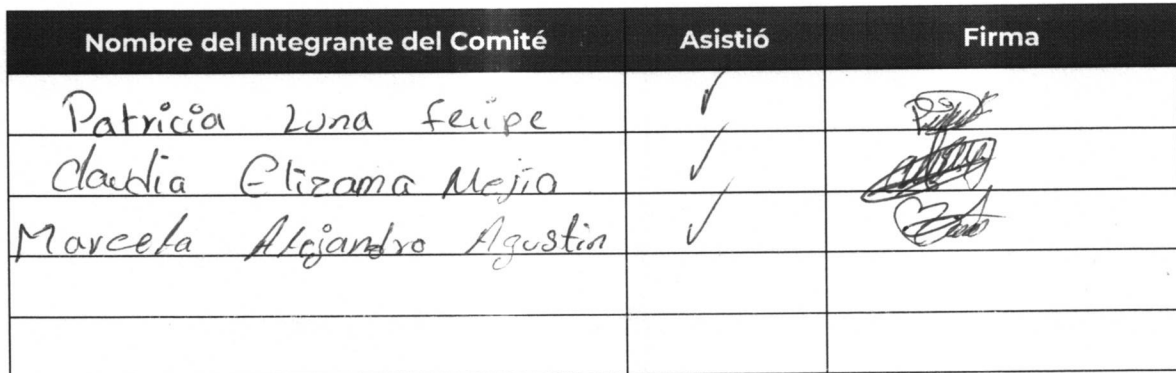 Nombre del Integrante del Comité Asistió Firma
Patricia Luna Felipe ✓
Claudia Elizama Mejia ✓
Marcela Alejandro Agustin ✓